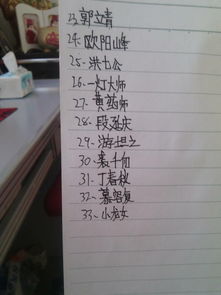 23、郭立青
24、欧阳峰
25、洪七公
26、一灯大师
27、黄药师
28、段延庆
29、游坦之
30、裘千仞
31、丁春秋
32、慕容复
33、小龙女